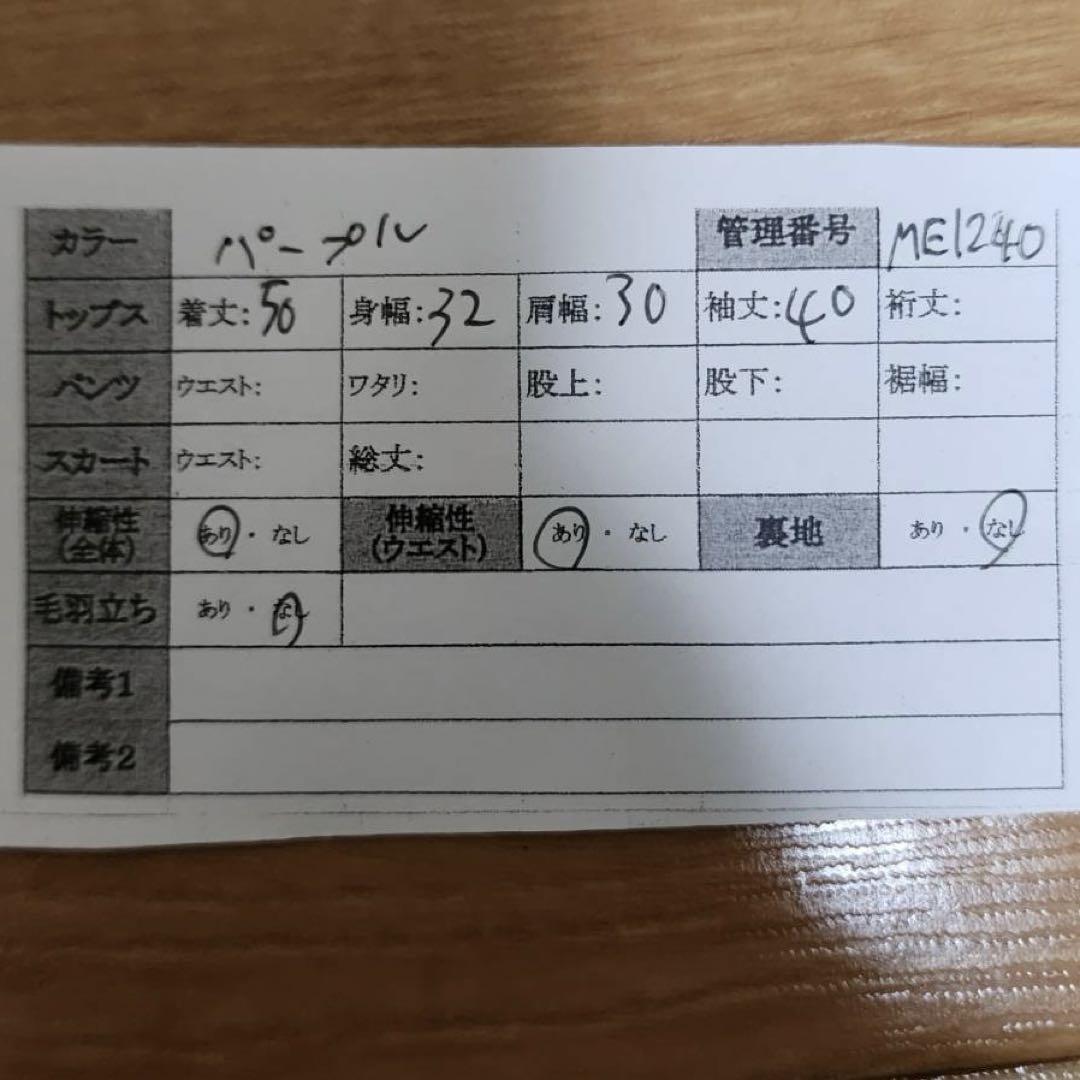 カラー パープル 管理番号 ME1240
トップス 着丈:50 身幅:32 肩幅:30 袖丈:40 裄丈:
パンツ ウエスト: ワタリ: 股上: 股下: 裾幅:
スカート ウエスト: 総丈:
伸縮性(全体) あり・なし 伸縮性(ウエスト) あり・なし 裏地 あり・なし
毛羽立ち あり・なし
備考1
備考2